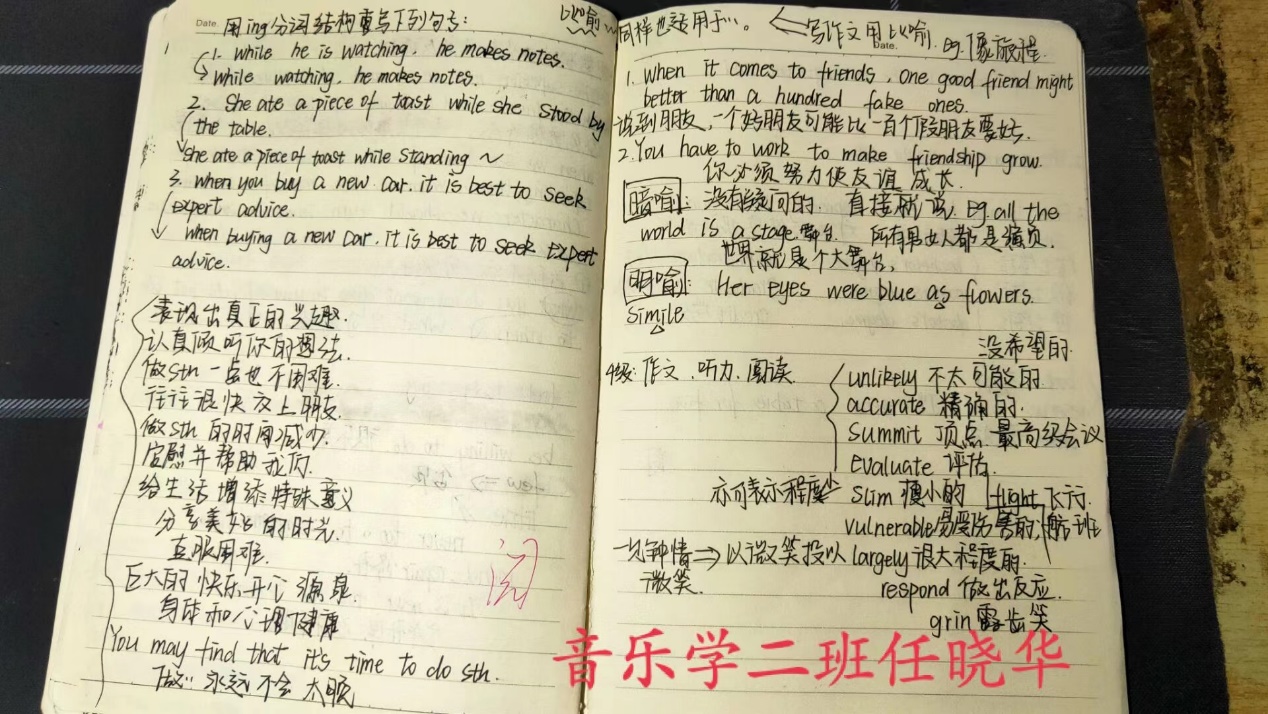 Date.
用ing分词结构重写下列句子:
1. while he is watching, he makes notes.
while watching, he makes notes.
2. She ate a piece of toast while she stood by
the table.
She ate a piece of toast while standing ~
3. when you buy a new car, it is best to seek
expert advice.
when buying a new car, it is best to seek expert
advice.
表现出真正的兴趣.
认真倾听你的想法.
做sth 一点也不困难.
往往很快交上朋友.
做sth 的时间减少.
安慰并帮助我们.
给生活增添特殊意义
分享美好的时光.
克服困难.
巨大的快乐开心源泉.
身体和心理健康
You may find that it's time to do sth.
做… 永远不会太晚
阅
比喻
同样也适用于…。 ← 写作文用比喻. eg.像旅程.
Date.
1. When it comes to friends, one good friend might
better than a hundred fake ones.
说到朋友,一个好朋友可能比一百个假朋友要好.
2. You have to work to make friendship grow.
你必须努力使友谊成长.
暗喻: 直接就说. eg. all the
world is a stage. 舞台. 所有男女人都是演员.
世界就是个大舞台.
明喻: Her eyes were blue as flowers.
simile
没希望的
4级: 作文、听力、阅读.
unlikely 不太可能的.
accurate 精确的.
summit 顶点. 最高级会议
evaluate 评估.
亦可表示程度少 slim 瘦小的 flight 飞行.
vulnerable 易受伤害的, 航班
⇒ 以微笑投以 largely 很大程度的.
微笑. respond 做出反应.
grin 露齿笑
音乐学二班任晓华